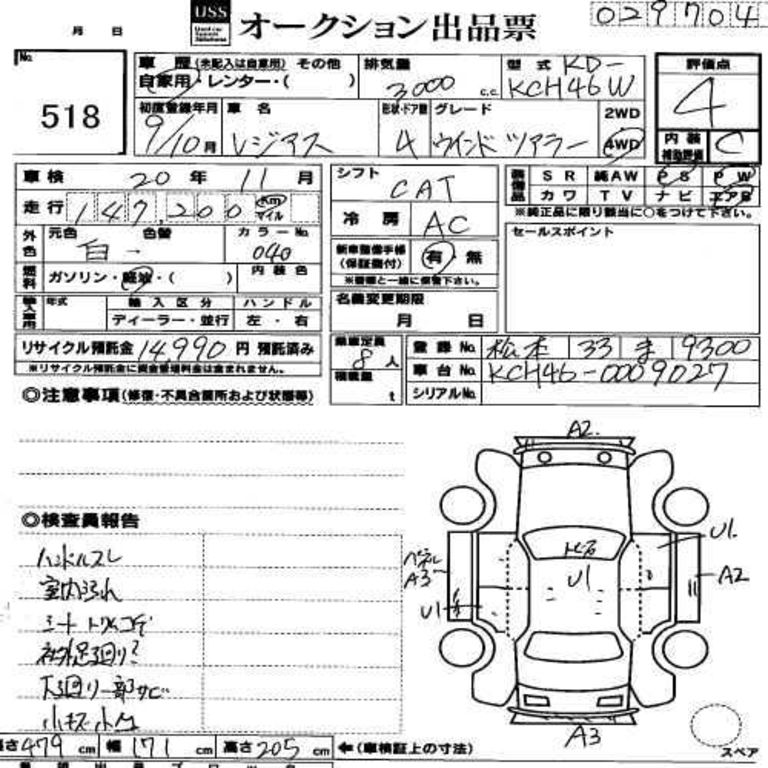 029704
USS オークション出品票
月 日
No. 518
車歴 (未記入は自家用) その他
自家用・レンター・( )
排気量 3000 c.c.
型式 KD-KCH46W
評価点 4
初度登録年月 9/10月
車名 レジアス
形状・ドア数 4
グレード ウインドツアラー
2WD
4WD
内装補助評価 C
車検 20年 11月
走行 147,200 Km マイル
外色 元色 白 - 色替 カラーNo. 040
燃料 ガソリン・軽油・( ) 内装色
輸入車用 年式 輸入区分 ハンドル
ディーラー・並行 左・右
リサイクル預託金 14990円 預託済み
※リサイクル預託金に資金管理料金は含まれません。
シフト CAT
冷房 AC
新車整備手帳 (保証書付) 有・無
※書類と一緒に保管下さい。
名義変更期限
月 日
乗車定員 8人
積載量 t
装備品 SR 純AW PS PW
カワ TV ナビ エアB
※純正品に限り該当に○をつけて下さい。
セールスポイント
登録No. 松本 33 ま 9300
車台No. KCH46-0009027
シリアルNo.
◎注意事項(修復・不具合箇所および状態等)
◎検査員報告
ハンドルスレ
室内汚れ
下回り一部サビ
小キズ小凹
A2.
U1.
パネル A3
U1
A2
U1
A3
スペア
長さ479cm 幅171cm 高さ205cm ←(車検証上の寸法)